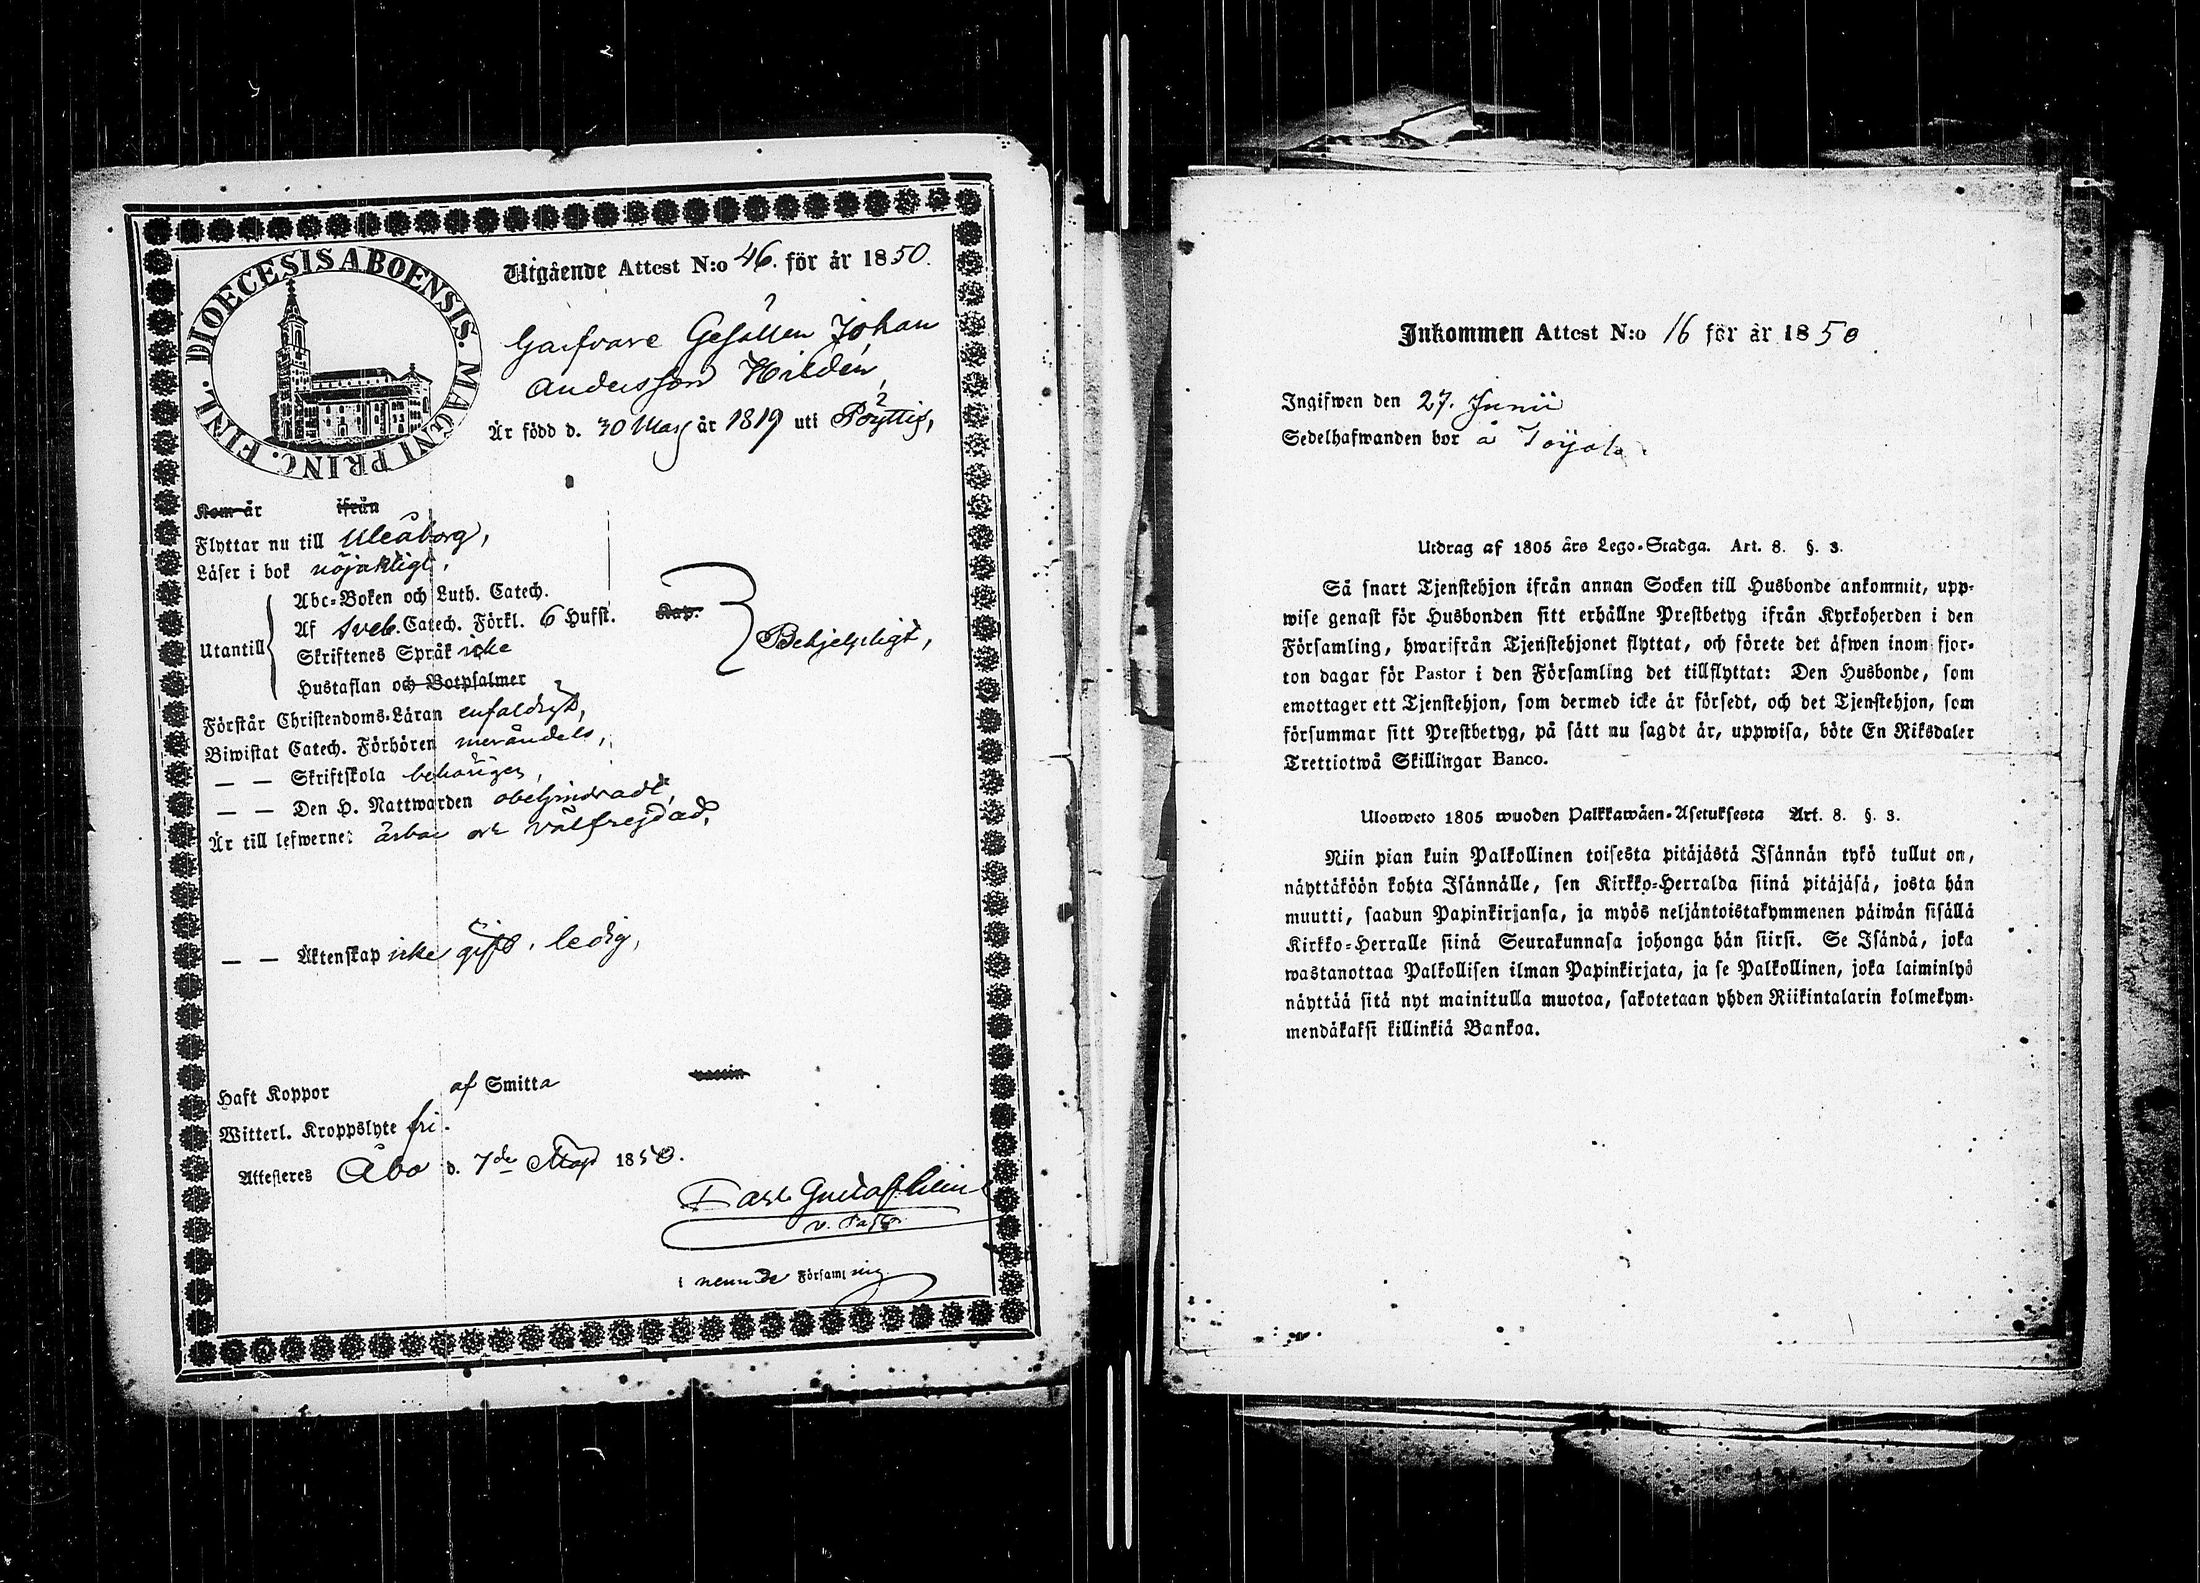 DIOECESIS ABOENSIS. MAGNI PRINC. FINL.
Utgående Attest N:o 46. för år 1850.
Garfvare Gesällen Johan
Andersson Hildén,
Är född d. 30 Maj år 1819 uti Pöyttis,
Kom år ifrån
Flyttar nu till Uleåborg,
Läser i bok nöjaktigt,
Utantill
Abc-Boken och Luth. Catech.
Af Sveb. Catech. Förkl. 6 Hufst. Kap.
Skriftenes Språk icke
Hustaflan och Botpsalmer
Behjelpligt,
Förstår Christendoms-Läran enfaldigt,
Biwistat Catech. Förhören merändels,
— — Skriftskola behörigen,
— — Den H. Nattwarden obehindradt,
Är till lefwerne: ärbar och välfrejdad,
— — Äktenskap icke gift, ledig,
Haft Koppor af Smitta vaccin
Witterl. Kroppslyte fri.
Attesteres Åbo d. 7de Maji 1850.
Carl Gustaf
v. Past.
i nemnde Församling
Inkommen Attest N:o 16 för år 1850.
Ingifwen den 27. Junii
Sedelhafwanden bor å
Utdrag af 1805 års Lego-Stadga. Art. 8. §. 3.
Så snart Tjenstehjon ifrån annan Socken till Husbonde ankommit, upp-
wise genast för Husbonden sitt erhållne Prestbetyg ifrån Kyrkoherden i den
Församling, hwarifrån Tjenstehjonet flyttat, och förete det äfwen inom fjor-
ton dagar för Pastor i den Församling det tillflyttat: Den Husbonde, som
emottager ett Tjenstehjon, som dermed icke är försedt, och det Tjenstehjon, som
försummar sitt Prestbetyg, på sätt nu sagdt är, uppwisa, böte En Riksdaler
Trettiotwå Skillingar Banco.
Ulosweto 1805 wuoden Palkkawäen-Asetuksesta Art. 8. §. 3.
Niin pian kuin Palkollinen toisesta pitäjästä Isännän tykö tullut on,
näyttäköön kohta Isännälle, sen Kirkko-Herralda siinä pitäjäsä, josta hän
muutti, saadun Papinkirjansa, ja myös neljäntoistakymmenen päiwän sisällä
Kirkko-Herralle siinä Seurakunnasa johonga hän siirsi. Se Isändä, joka
wastanottaa Palkollisen ilman Papinkirjata, ja se Palkollinen, joka laiminlyö
näyttää sitä nyt mainitulla muotoa, sakotetaan yhden Riikintalarin kolmekym-
mendäkaksi killinkiä Bankoa.